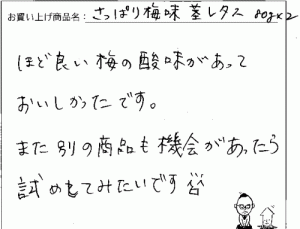 お買い上げ商品名：さっぱり梅味 茎レタス 80g×2
ほど良い梅の酸味があって
おいしかったです。
また別の商品も機会があったら
試めしてみたいです